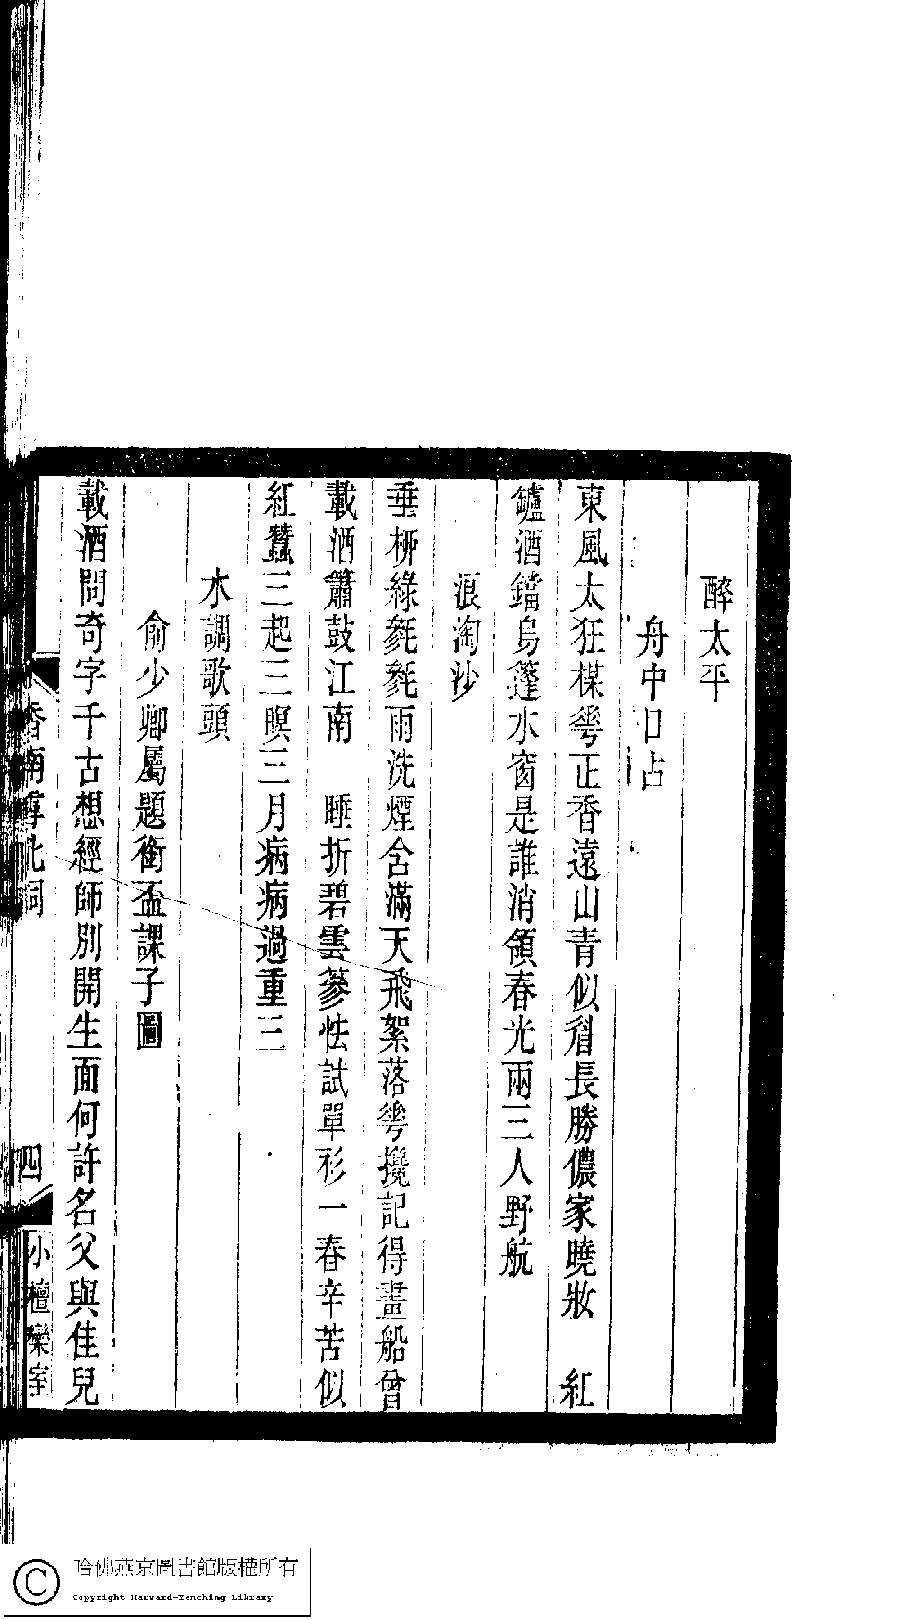 醉太平
舟中口占
東風太狂楳蕚正香遠山青似眉長勝儂家曉妝　紅
鑪酒鐺烏篷水窗是誰消領春光兩三人野航
浪淘沙
垂柳綠毿毿雨洗煙含滿天飛絮落蕚攙記得畫船曾
載酒簫鼓江南　睡折碧雲篸怯試單衫一春辛苦似
紅蠶三起三瞑三月病病過重三
水調歌頭
俞少卿屬題銜盃課子圖
載酒問奇字千古想經師別開生面何許名父與佳兒
香南雪北詞
四
小檀欒室
哈佛燕京圖書館版權所有
Copyright Harvard-Yenching Library